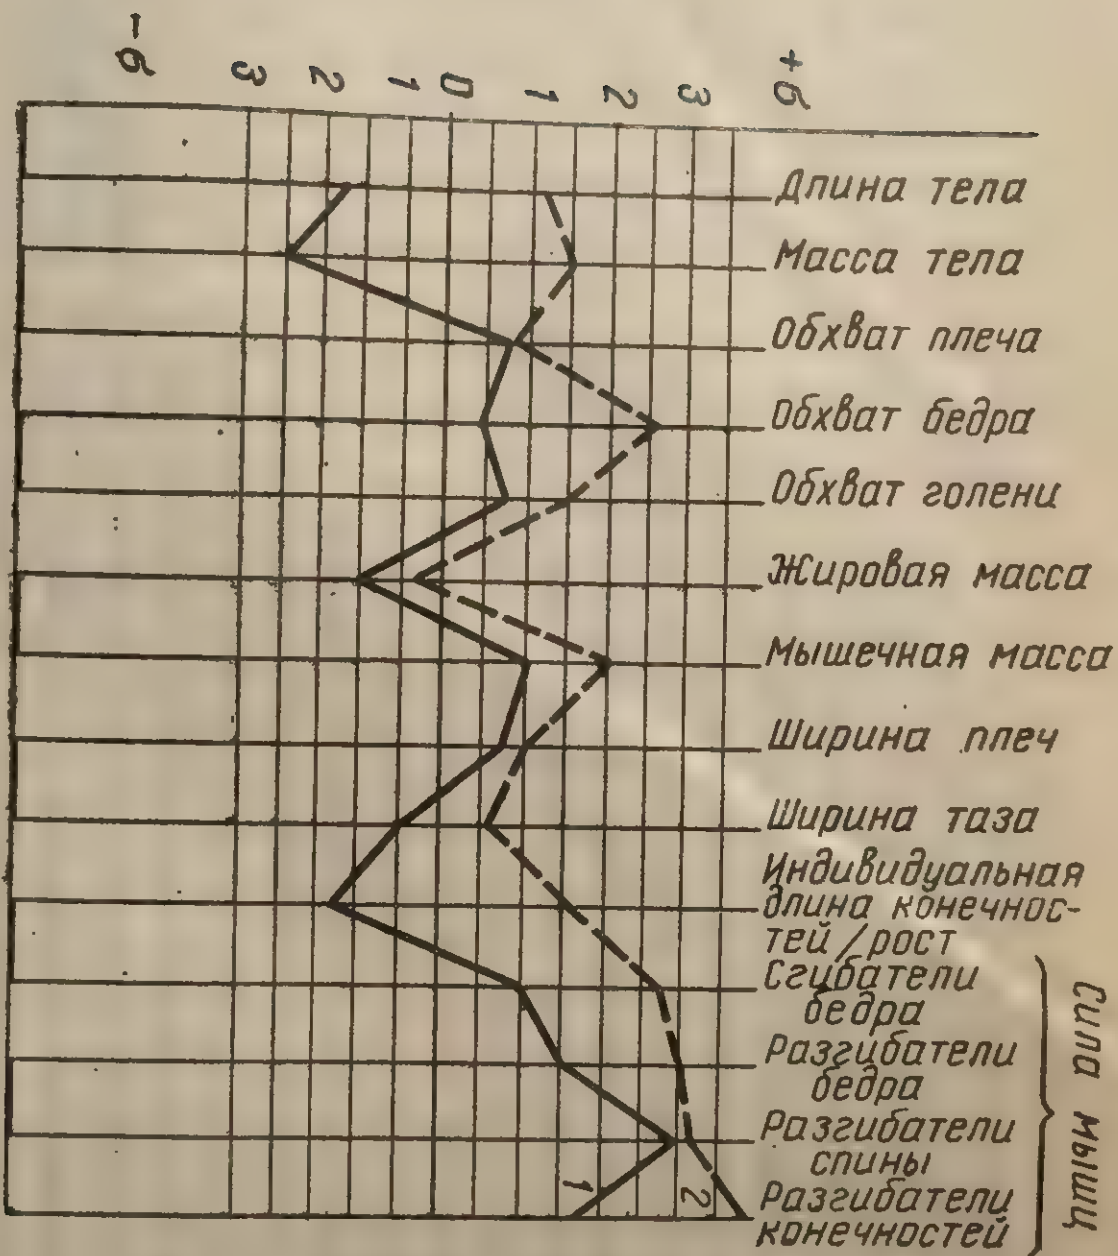 -σ 3 2 1 0 1 2 3 +σ
Длина тела
Масса тела
Обхват плеча
Обхват бедра
Обхват голени
Жировая масса
Мышечная масса
Ширина плеч
Ширина таза
Индивидуальная
длина конечнос-
тей/рост
Сгибатели
бедра
Разгибатели
бедра
Разгибатели
спины
Разгибатели
конечностей
Сила мышц
1 2